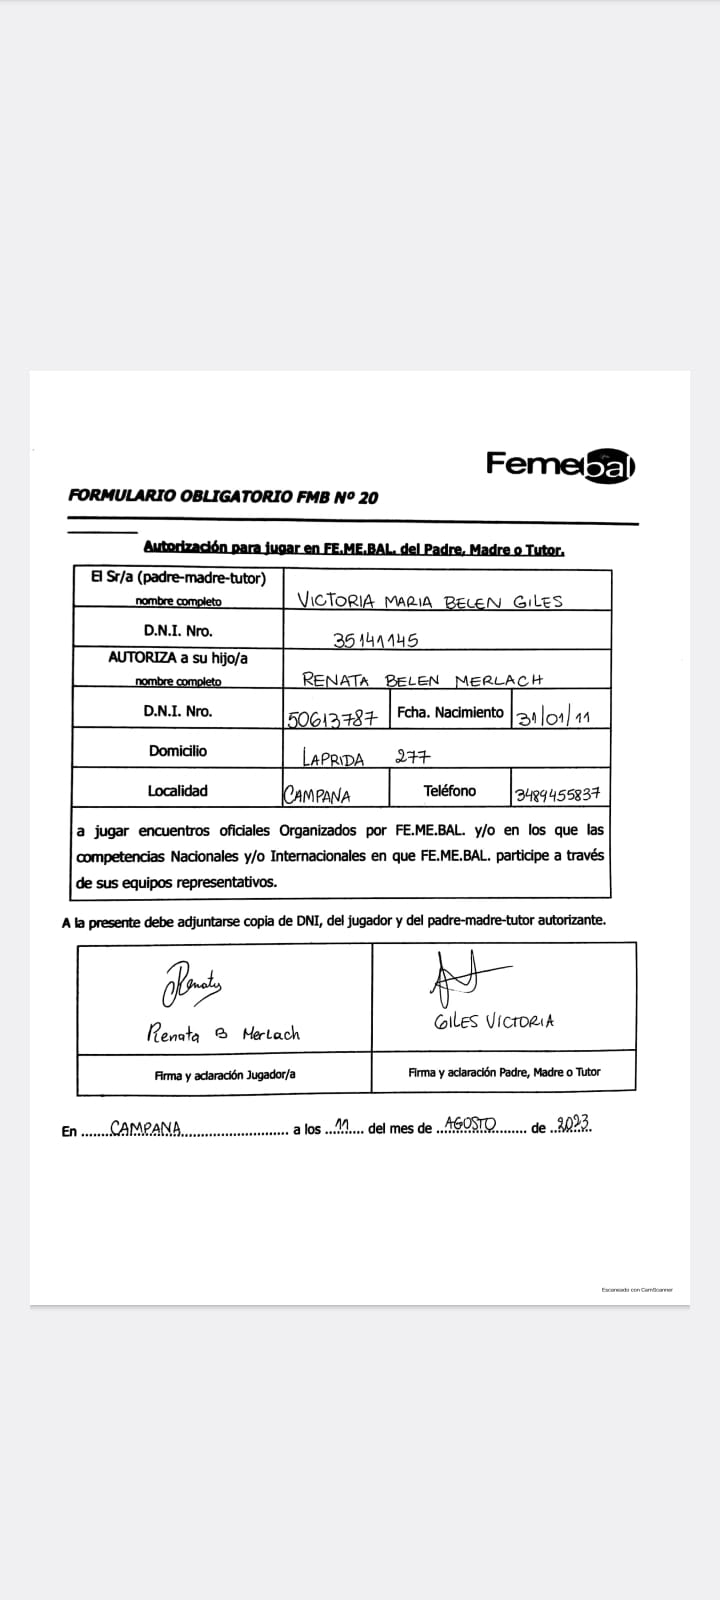 Femebal
FORMULARIO OBLIGATORIO FMB Nº 20
Autorización para jugar en FE.ME.BAL. del Padre, Madre o Tutor.
El Sr/a (padre-madre-tutor)
nombre completo VICTORIA MARIA BELEN GILES
D.N.I. Nro. 35141145
AUTORIZA a su hijo/a
nombre completo RENATA BELEN MERLACH
D.N.I. Nro. 50613787 Fcha. Nacimiento 31/01/11
Domicilio LAPRIDA 277
Localidad CAMPANA Teléfono 3489455837
a jugar encuentros oficiales Organizados por FE.ME.BAL. y/o en los que las
competencias Nacionales y/o Internacionales en que FE.ME.BAL. participe a través
de sus equipos representativos.
A la presente debe adjuntarse copia de DNI, del jugador y del padre-madre-tutor autorizante.
Renata B Merlach
GILES VICTORIA
Firma y aclaración Jugador/a
Firma y aclaración Padre, Madre o Tutor
En ........CAMPANA............................ a los ..11.... del mes de ..AGOSTO........ de ..2023.
Escaneado con CamScanner